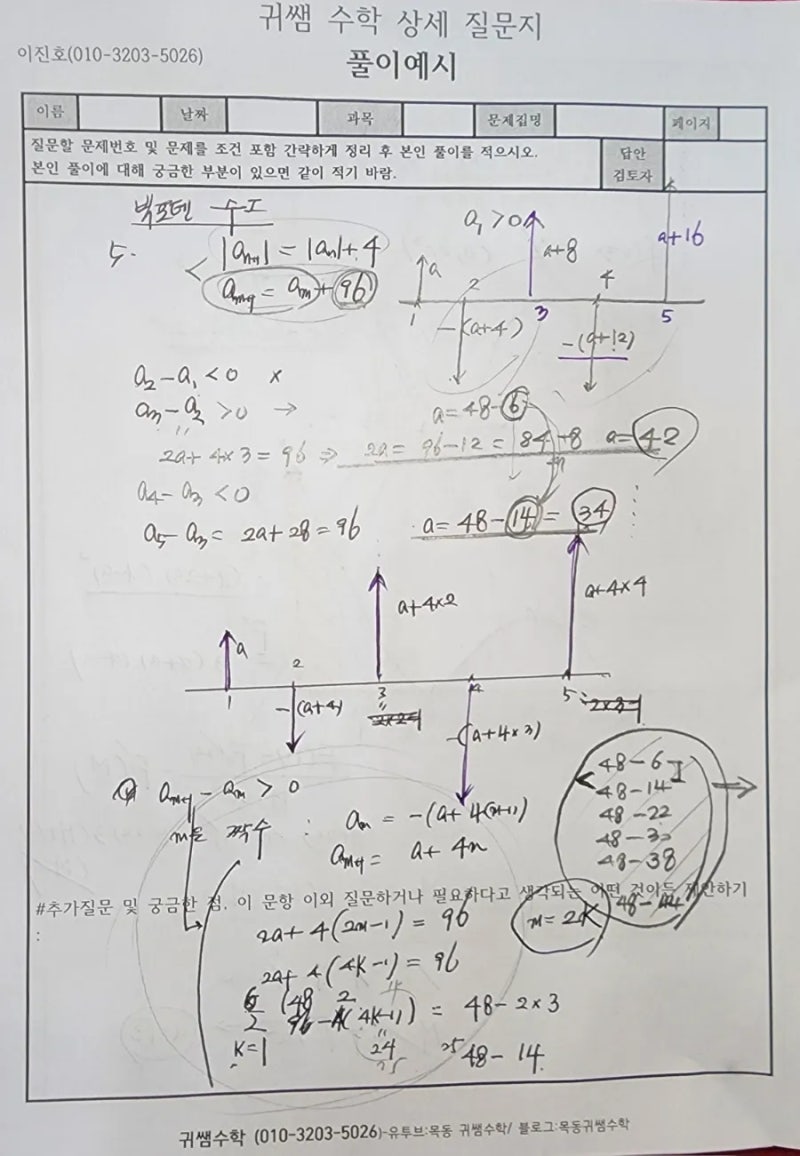 귀쌤 수학 상세 질문지
이진호(010-3203-5026)
풀이예시
이름 날짜 과목 문제집명 페이지
질문할 문제번호 및 문제를 조건 포함 간략하게 정리 후 본인 풀이를 적으시오.
본인 풀이에 대해 궁금한 부분이 있으면 같이 적기 바람.
답안
검토자
빅포텐 수I
5.
|aₙ₊₁| = |aₙ| + 4
aₘ₊₁ = aₘ + 96
a₁ > 0
a
a+8
a+16
1 2 3 4 5
-(a+4)
-(a+12)
a₂ - a₁ < 0 x
a₃ - a₂ > 0 →
a = 48-6
2a + 4×3 = 96 ⇒ 2a = 96-12 = 84 +8 a = 42
a₄ - a₃ < 0
a₅ - a₃ = 2a + 28 = 96 a = 48 - 14 = 34
a
a+4×2
a+4×4
1 2 3 4 5
-(a+4)
-(a+4×3)
aₘ₊₁ - aₘ > 0
m은 짝수 :
aₘ = -(a+4(m-1))
aₘ₊₁ = a + 4m
48-6
48-14
48-22
48-30
48-38
48-44
#추가질문 및 궁금한 점. 이 문항 이외 질문하거나 필요하다고 생각되는 어떤 것이든 제안하기
:
2a + 4(2m-1) = 96
m = 2k
2a + 4(4k-1) = 96
= 48 - 2×3
k=1
24
25
25
48 - 14
귀쌤수학 (010-3203-5026)-유투브:목동 귀쌤수학/ 블로그:목동귀쌤수학